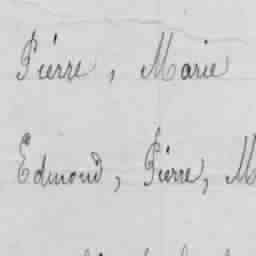 Pierre, Marie
Edmond, Pierre, M